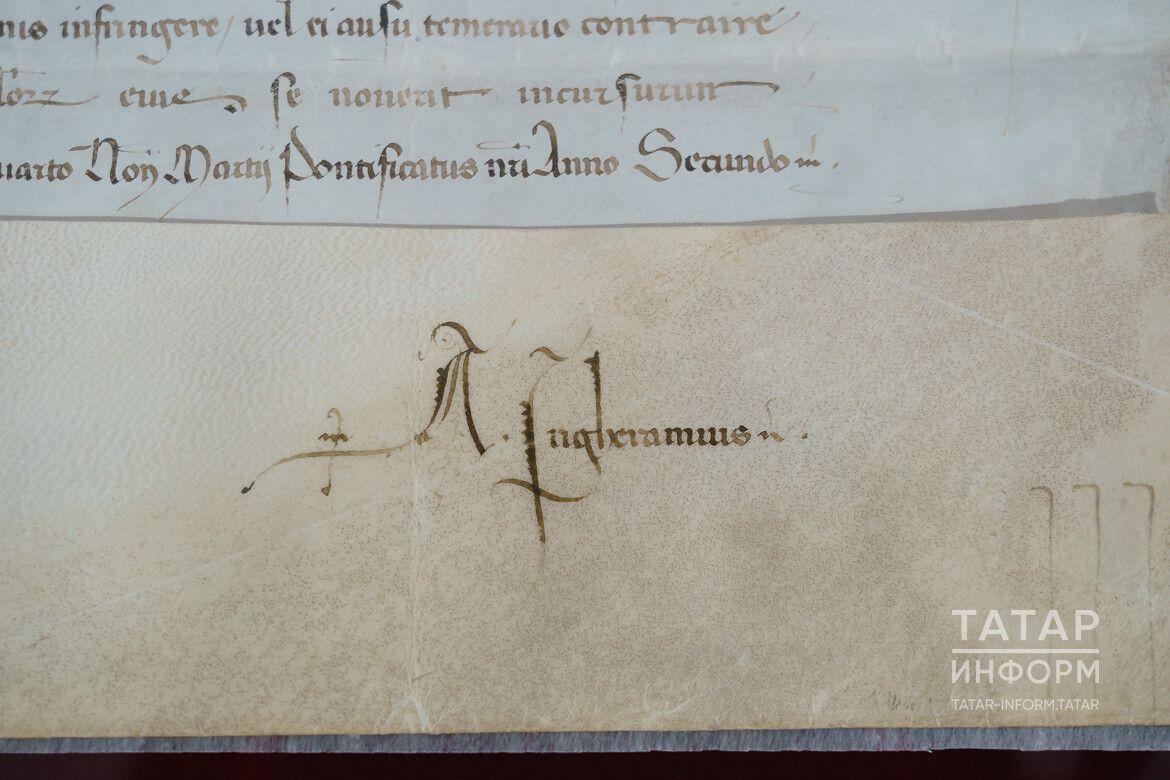 infringere vel ei ausu temerario contraire
eius se noverit incursurum
Martii Pontificatus nri Anno Secundo
A. Ingheramius
ТАТАР
ИНФОРМ
TATAR-INFORM.TATAR